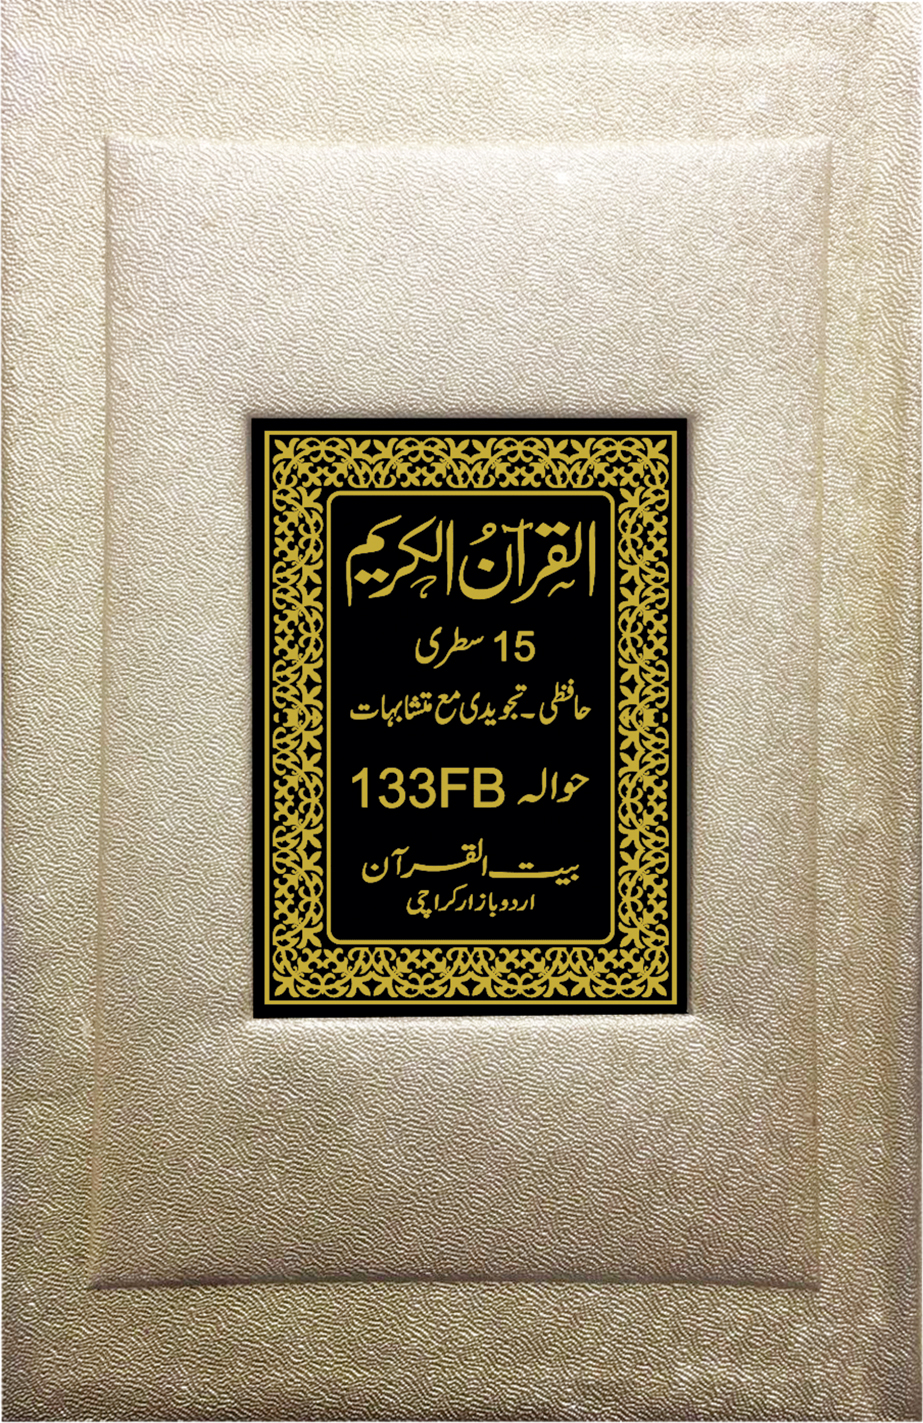 القرآنُ الکریم
15 سطری
حافظی ۔ تجویدی مع متشابہات
حوالہ 133FB
بیت القرآن
اردو بازار کراچی